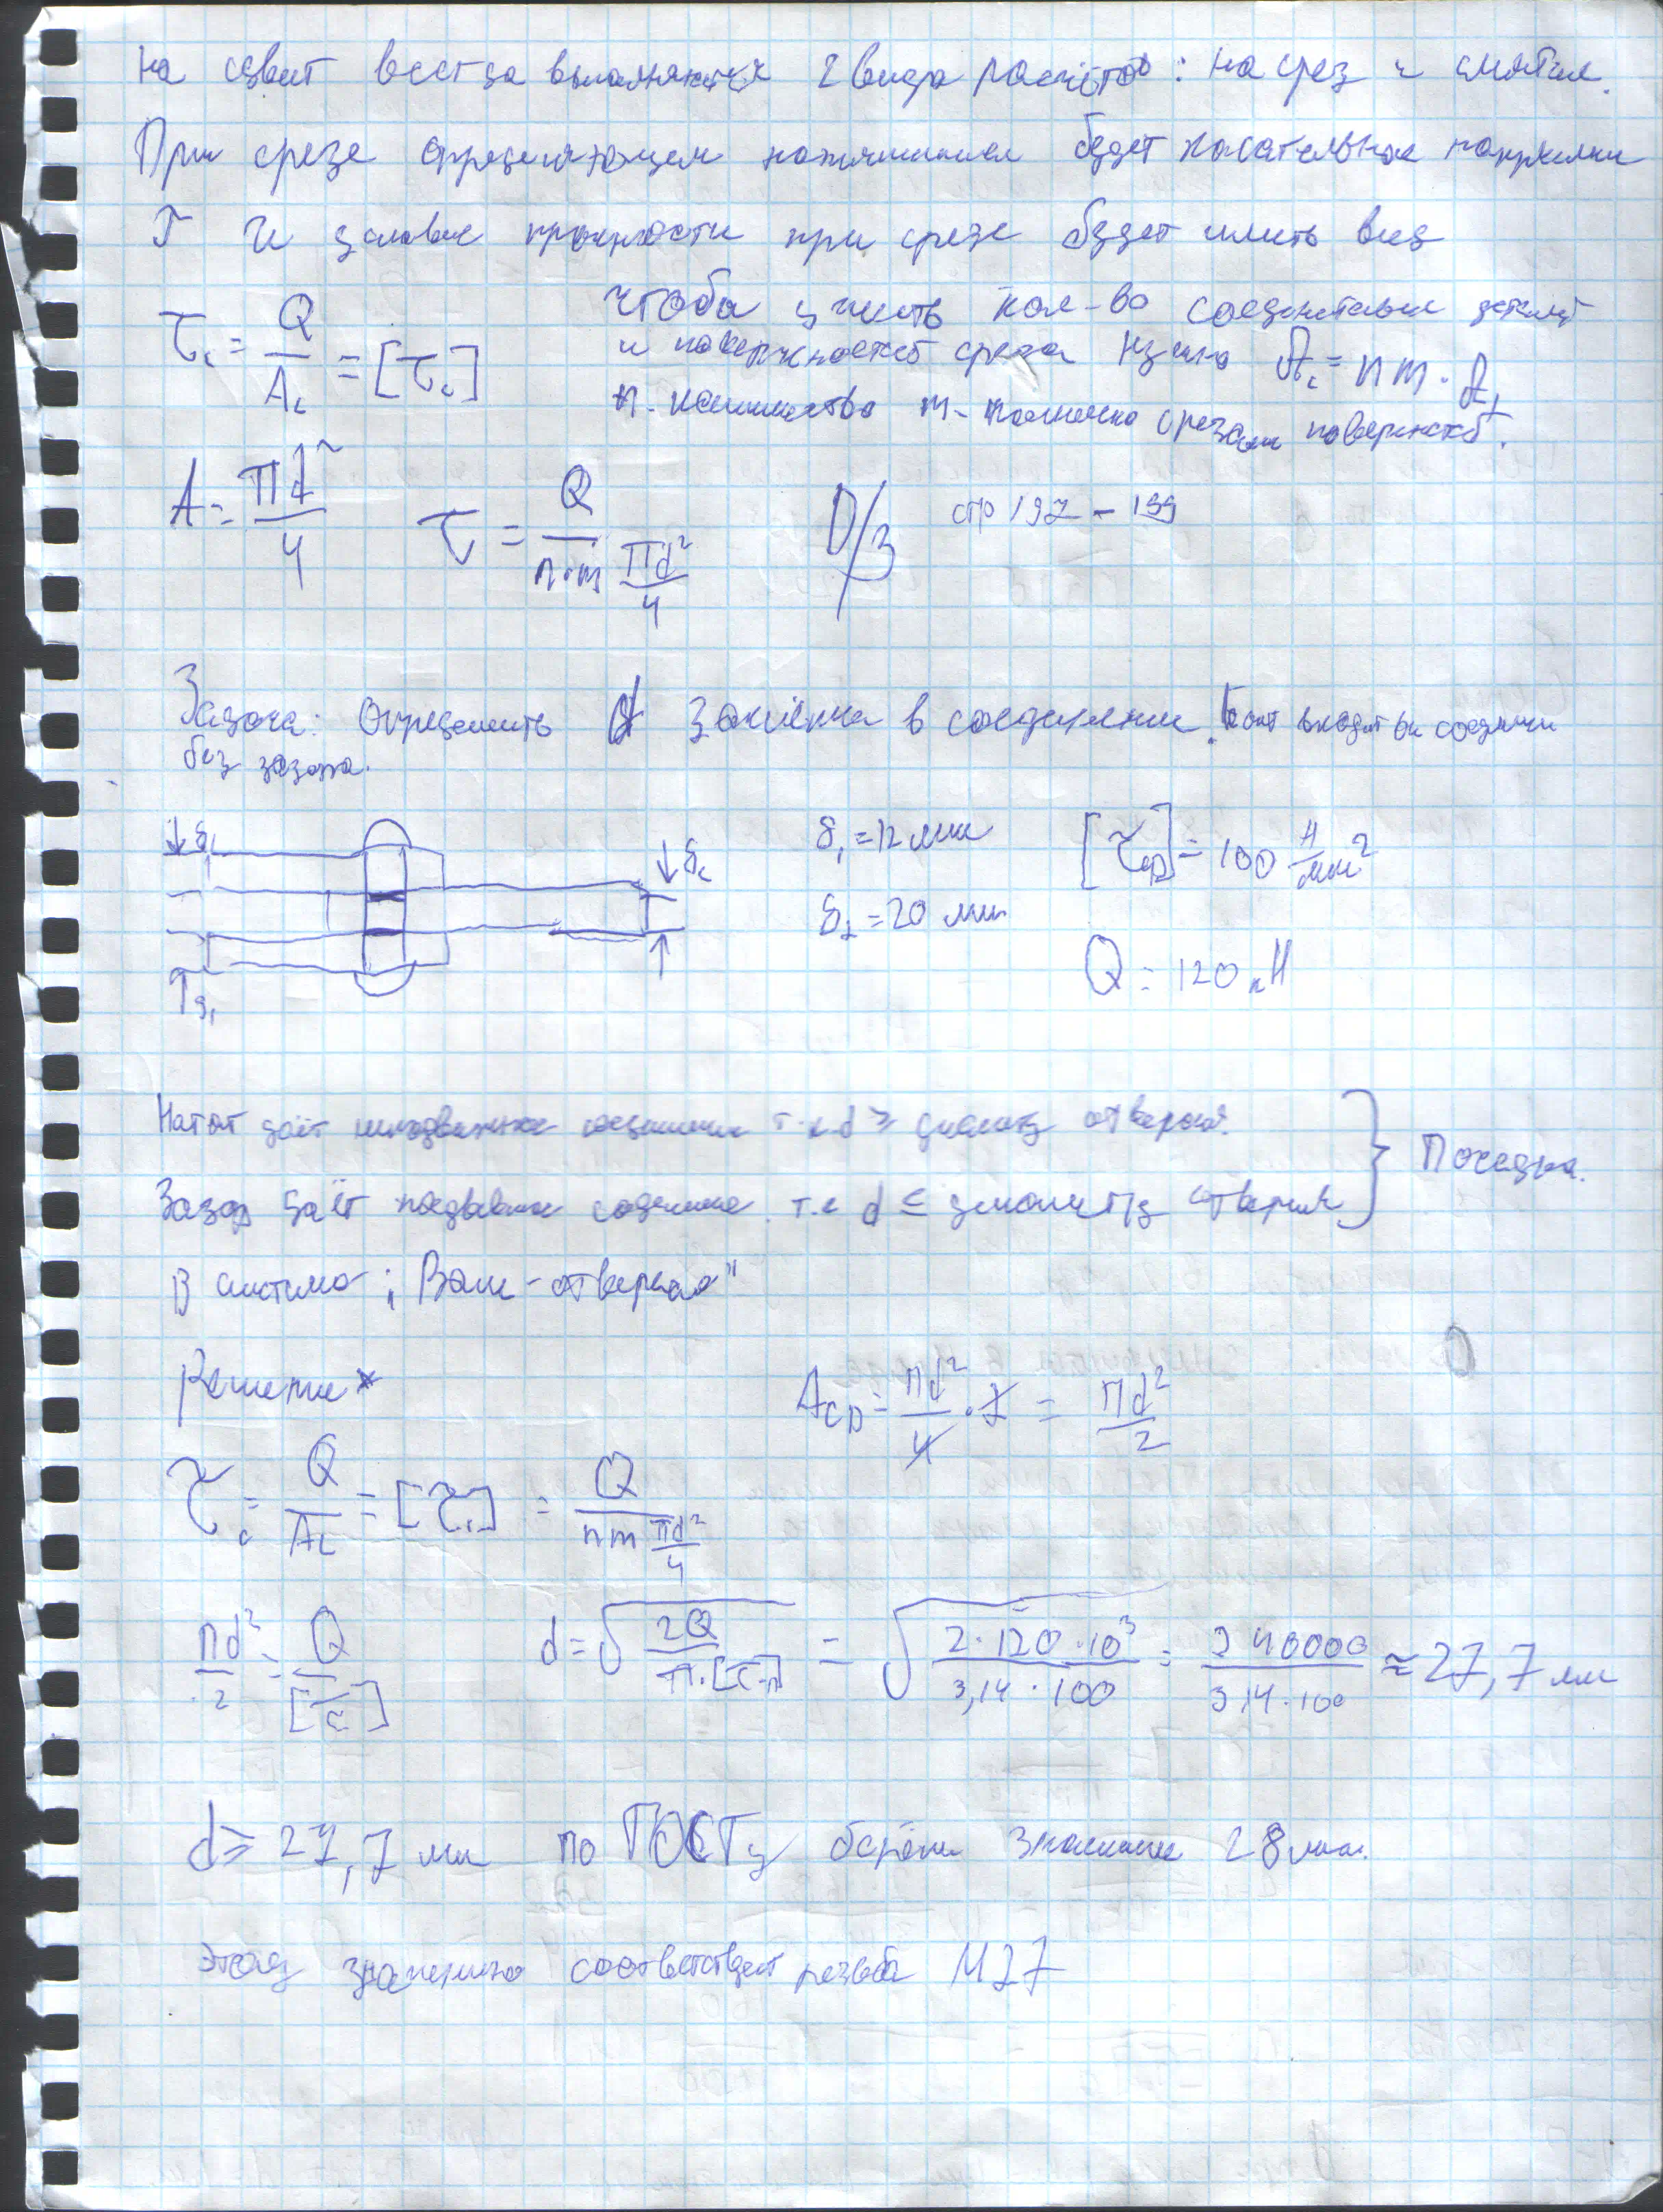 На сдвиг всегда выполняются 2 вида расчётов: на срез и смятие.
При срезе определяющем напряжением будет касательное напряжение
τ И условие прочности при срезе будет иметь вид
τc = Q/Ac = [τc]
чтобы учесть кол-во соединительных деталей
и поверхностей среза нужно Ac = nm · A1
n - количество m - количество срезаем поверхностей.
A = πd²/4 τ = Q/(n·m πd²/4) D/з стр 197 - 199
Задача: Определить d заклёпки в соединении. Болт входит в соединении
без зазора.
δ1 δ2 δ1 = 12 мм [τср] = 100 Н/мм²
δ2 = 20 мм
δ1 Q = 120 кН
Натяг даёт неподвижное соединение т.к. d ≥ диаметр отверстия.
Зазор даёт подвижное соединение т.к d ≤ диаметр отверстия } Посадка.
В системе „Вал - отверстие"
Решение
Aср = πd²/4 · 2 = πd²/2
τc = Q/Ac = [τc] = Q/(nm πd²/4)
πd²/2 = Q/[τc] d = √(2Q/(π·[τср])) = √(2·120·10³/(3,14·100)) = 240000/(3,14·100) ≈ 27,7 мм
d ≥ 27,7 мм по ГОСТу берём значение 28 мм.
Этому значению соответствует резьба М27